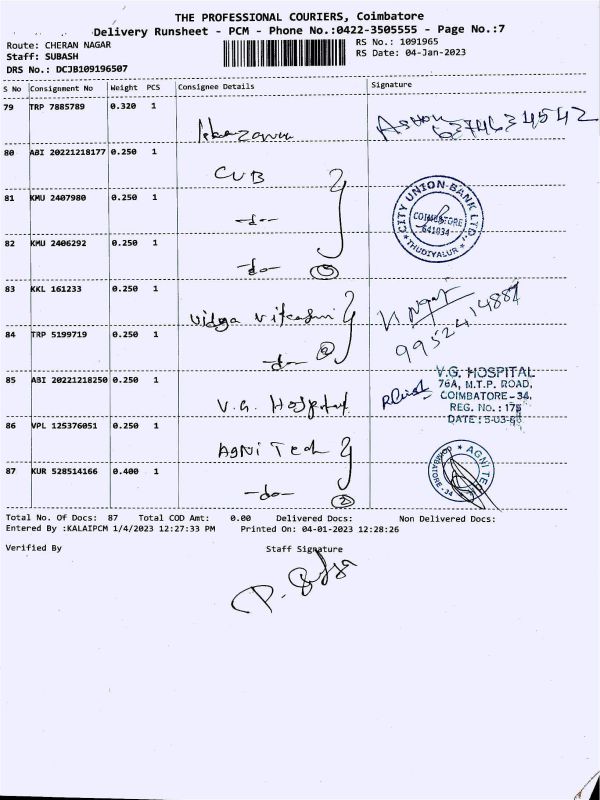 THE PROFESSIONAL COURIERS, Coimbatore
Delivery Runsheet - PCM - Phone No.:0422-3505555 - Page No.:7
Route: CHERAN NAGAR
RS No.: 1091965
Staff: SUBASH
RS Date: 04-Jan-2023
DRS No.: DCJB109196507
S No Consignment No Weight PCS Consignee Details Signature
79 TRP 7885789 0.320 1
6374634542
80 ABI 20221218177 0.250 1 CUB
81 KMU 2407980 0.250 1 -do-
CITY UNION BANK LTD.
COIMBATORE
641034
THUDIYALUR
82 KMU 2406292 0.250 1 -do-
83 KKL 161233 0.250 1 Vidya
84 TRP 5199719 0.250 1 -do- 2
85 ABI 20221218250 0.250 1 V.G. Hospital
V.G. HOSPITAL
76A, M.T.P. ROAD,
COIMBATORE-34.
REG. NO.: 175
DATE:
86 VPL 125376051 0.250 1 AGNI Tech
AGNI TE
COIMBATORE-34
87 KUR 528514166 0.400 1 -do- 2
Total No. Of Docs: 87 Total COD Amt: 0.00 Delivered Docs: Non Delivered Docs:
Entered By :KALAIPCM 1/4/2023 12:27:33 PM Printed On: 04-01-2023 12:28:26
Verified By Staff Signature